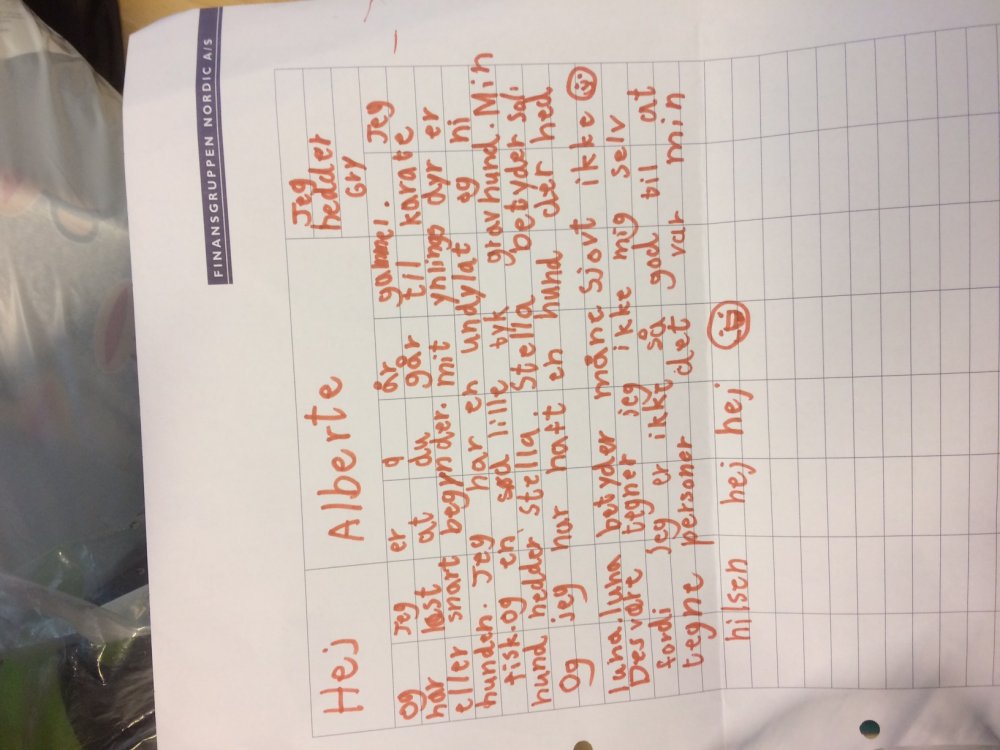 FINANSGRUPPEN NORDIC A/S
Jeg
hedder
Gry
Hej Alberte
og Jeg er 9 år gammel. Jeg
har læst at du går til karate
eller snart begynder. mit ynlings dyr er
hunden. Jeg har en undylat og ni
fisk. og en sød lille tyk gravhund. Min
hund hedder stella. Stella betyder sol.
Og jeg har haft en hund der hed
luna. luna betyder måne sjovt ikke
Desvære tegner jeg ikke mig selv
fordi jeg er ikkt så god til at
tegne personer det var min
hilsen hej hej hej